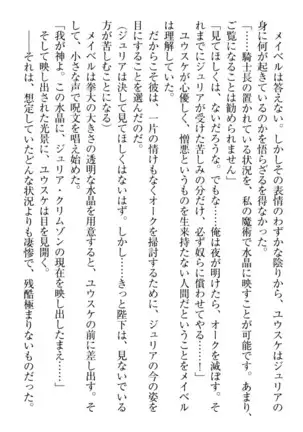 メイベルは答えない。しかしその表情のわずかな陰りから、ユウスケはジュリアの
身に何が起きているのかを悟らざるを得なかった。
「……騎士長の置かれている状況を、私の魔術で水晶に映すことが可能です。あまり、
ご覧になることは勧められません」
「見てほしくは、ないだろうな。でもな……俺は夜が明けたら、オークを滅ぼす。そ
れまでにジュリアが受けた苦しみの分だけ、必ず奴らに償わせてやる……！」
ユウスケが心優しく、憎悪というものを生来持たない人間だということをメイベル
は理解していた。
だからこそ彼は、一片の情けもなくオークを掃討するために、ジュリアの今の姿を
目にすることを選んだのだ。
（ジュリアは決して見てほしくはないはず。しかし……きっと陛下は、見ないでいる
方が苦しむことになる）
メイベルは拳大の大きさの透明な水晶を用意すると、ユウスケの前に差し出す。そ
して、小さな声で呪文を唱え始めた。
「我が神よ。この水晶に、ジュリア・クリムゾンの現在を映し出したまえ……」
そして映し出された光景に、ユウスケは目を見開く。
――それは、想定していたどんな状況よりも凄惨で、残酷極まりないものだった。